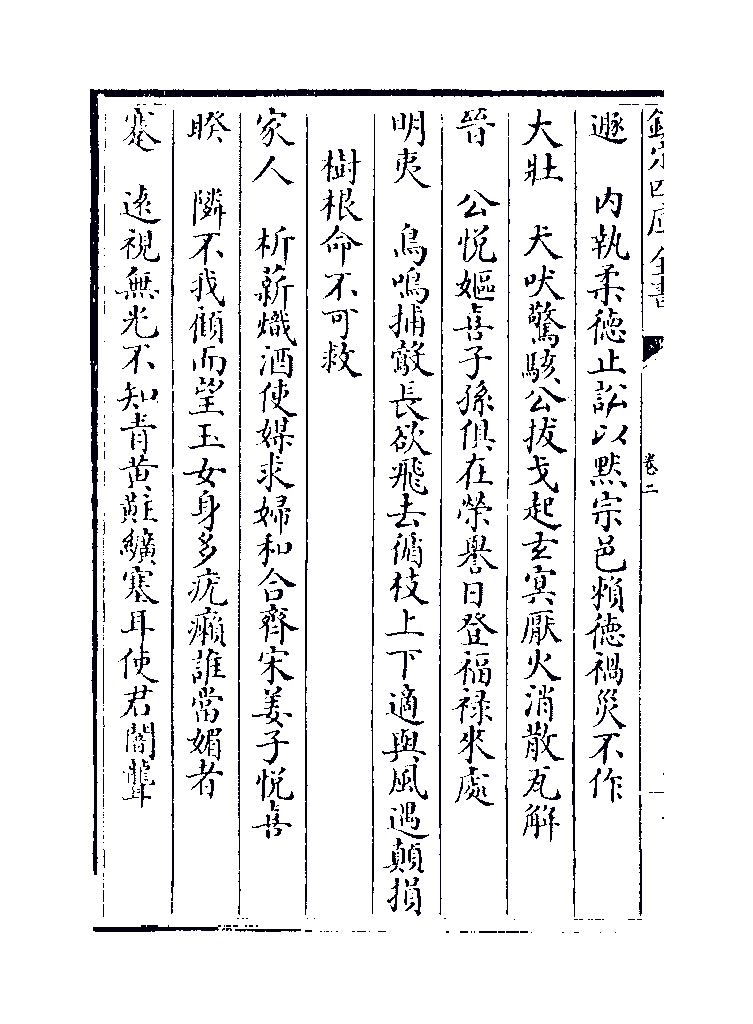 欽定四庫全書
卷二
遯　内執柔德止訟以黙宗邑頼德禍災不作
大壯　犬吠驚駭公拔戈起玄冥厭火消散瓦解
晉　公悦嫗喜子孫俱在榮譽日登福禄來處
明夷　鳥鳴捕鷇長欲飛去循枝上下適與風遇顛損
樹根命不可救
家人　析薪熾酒使媒求婦和合齊宋姜子悦喜
睽　隣不我顧而望玉女身多疣癩誰當媚者
蹇　逺視無光不知青黄黈纊塞耳使君闇聾